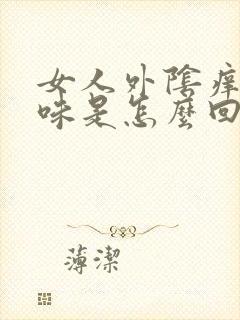 女人外陰痒
味是怎麼回
薄潔